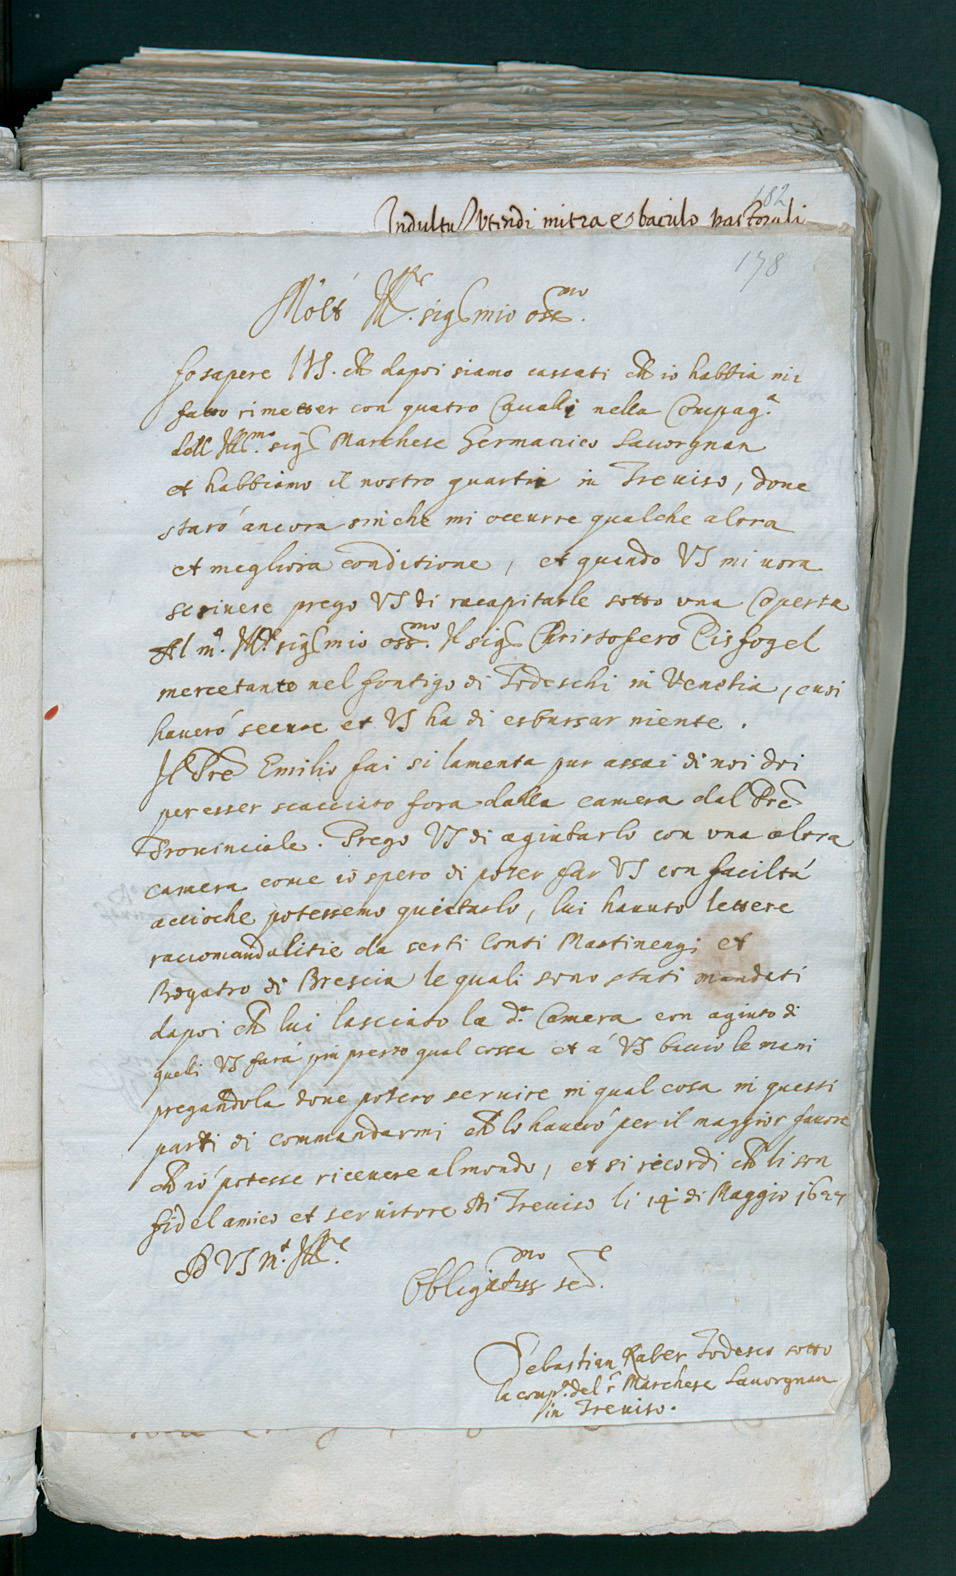 182
Indultu Utendi mitra et baculo pastorali
178
Molt Ill.re sig.r mio oss.mo
Fo sapere VS. ch dapoi siamo cassati ch io habbia mi
fatto rimetter con quatro Cavalli nella Compag.a
dell Ill.mo sig.r Marchese Germanico Savorgnan
et habbiamo il nostro quartir in Treviso, dove
starò ancora sin che mi occurre qualche altra
et megliora conditione, et quando VS mi vora
scrivere prego VS di racapitarle sotto una Coperta
Al m.to Ill.re sig.r mio oss.mo Il sig.r Christofero Cisfogel
mercetante nel fontigo di Todeschi in Venetia, cusi
haverò secure et VS ha di esbursar niente.
Il Pre Emilio fai si lamenta pur assai di noi doi
per esser scacciato fora dalla camera dal Pre
Provinciale. Prego VS di agiutarlo con una altra
camera come io spero di poter far VS con facilta
accioche potessemo quietarlo, lui havuto lettere
raccomandalitie da serti Conti Martinengi et
Bogatro di Brescia le quali sono stati mandati
dapoi ch lui lasciato la d.a Camera con agiuto di
queli VS farà piu presto qual cossa et à VS baccio le mani
pregandola dove potero servire in qual cosa in questi
parti di commandarmi ch lo haverò per il maggior favore
ch io potesse ricevere al mondo, et si recordi ch li son
fidel amico et servitore Di Treviso li 14 di Maggio 1627
D VS m.t Ill.re
Obligatiss.mo se.e
Sebastian Raber Todesco sotto
la comp.a del s.r Marchese Savorgnan
in Treviso.